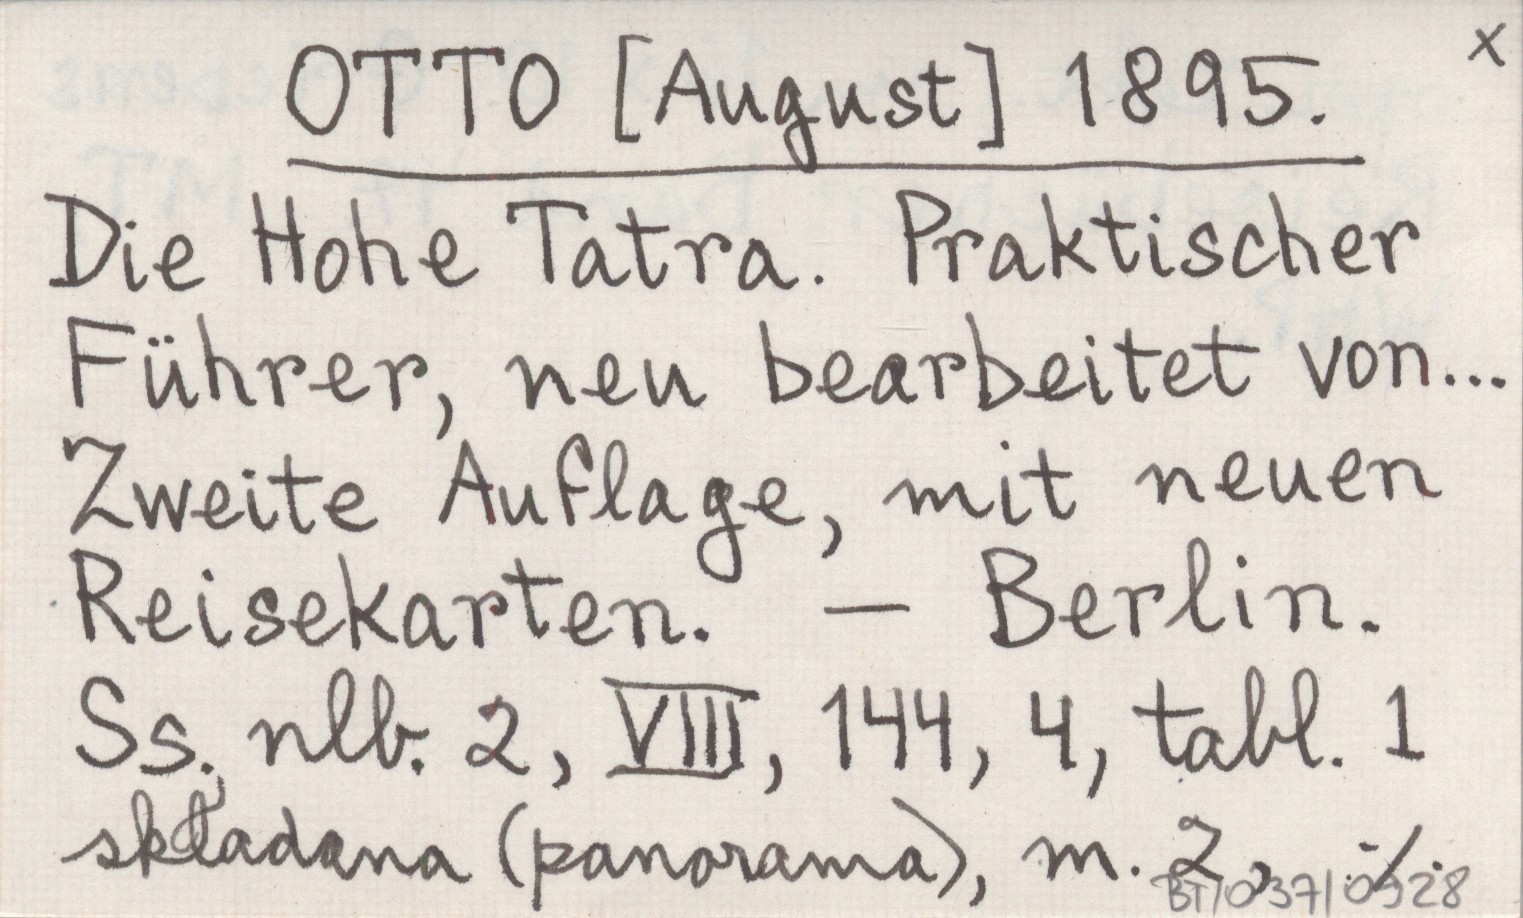 x
OTTO [August] 1895.
Die Hohe Tatra. Praktischer
Führer, neu bearbeitet von...
Zweite Auflage, mit neuen
Reisekarten. — Berlin.
Ss. nlb. 2, VIII, 144, 4, tabl. 1
składana (panorama), m. 2, ./.
BT/037/0928